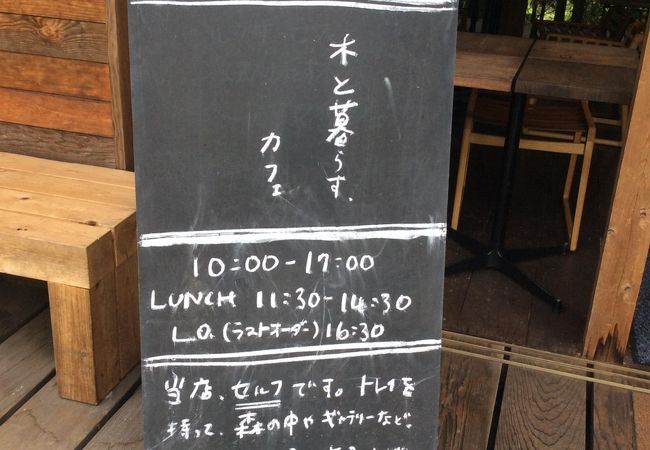 木と暮らす、
カフェ
10:00-17:00
LUNCH 11:30-14:30
L.O.(ラストオーダー)16:30
当店、セルフです。トレイを
持って、森の中やギャラリーなど、